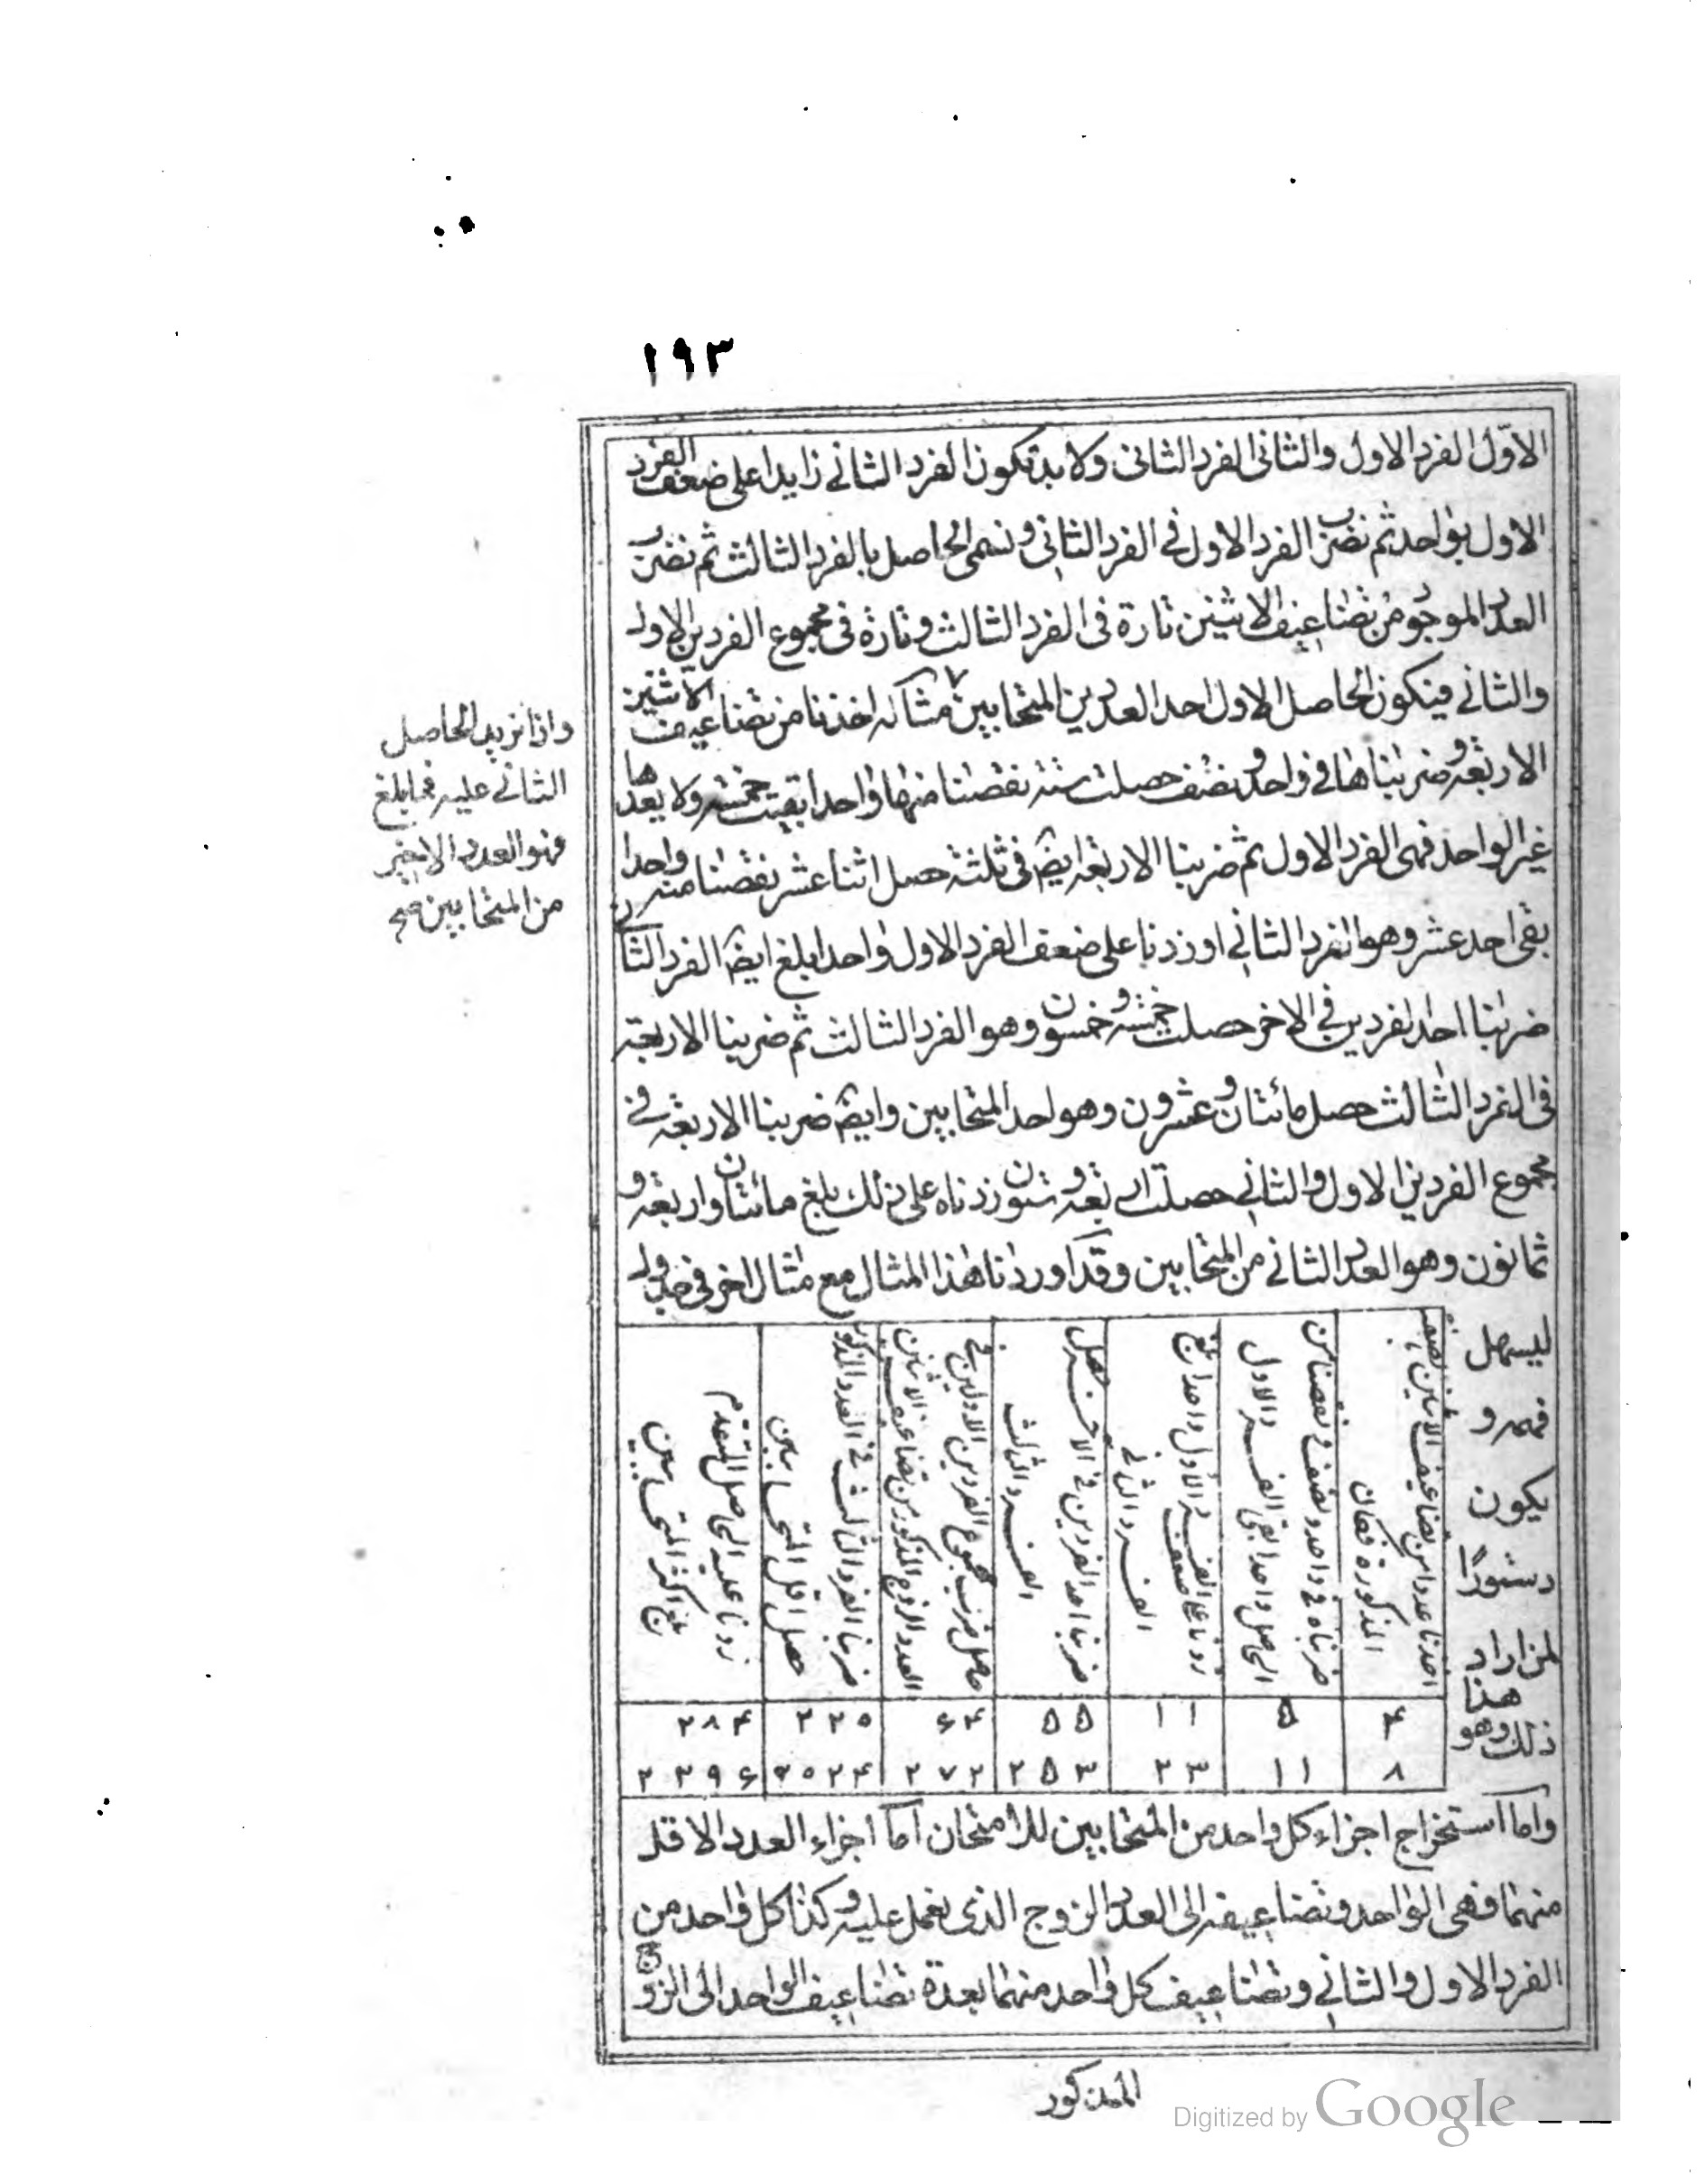 ١٩٣
الاوّل الفرد الاول والثانى الفرد الثانى ولا بد تكون الفرد الثانى زايدا على ضعف الفرد
الاول بواحد ثم نضرب الفرد الاول فى الفرد الثانى ونسمى الحاصل بالفرد الثالث ثم نضرب
العدد الموجود من تضاعيف الاثنين تارة فى الفرد الثالث وتارة فى مجموع الفردين الاول
والثانى فيكون الحاصل الاول احد العددين المتحابين مثاله اخذنا من تضاعيف الاثنين
الاربعة وضربناها فى واحد ونصف حصلت ستة نقصنا منها واحدا بقيت خمسة ولا يعدها
غير الواحد فهى الفرد الاول ثم ضربنا الاربعة ايضا فى ثلثة حصل اثنا عشر نقصنا منه واحدا
بقى احد عشر وهو الفرد الثانى او زدنا على ضعف الفرد الاول واحدا بلغ ايضا الفرد الثانى
ضربنا احد الفردين فى الاخر حصلت خمسة وخمسون وهو الفرد الثالث ثم ضربنا الاربعة
فى الفرد الثالث حصل مائتان وعشرون وهو احد المتحابين وايضا ضربنا الاربعة فى
مجموع الفردين الاول والثانى حصلت اربعة وستون زدناه على ذلك بلغ مائتان واربعة و
ثمانون وهو العدد الثانى من المتحابين وقد اوردنا هذا المثال مع مثال اخر فى جدول
واذا نزيد الحاصل
الثانى عليه فما بلغ
فهو العدد الاخير
من المتحابين صح
ليسهل
فهمه و
يكون
دستورا
لمن اراد
هذا
ذلك وهو
اخذنا عددا من تضاعيف الاثنين
المذكورة فكان
ضربناه فى واحد ونصف ونقصنا من
الحاصل واحدا بقى الفرد الاول
زدنا على ضعف الفرد الاول واحدا بلغ
الفرد الثانى
ضربنا احد الفردين فى الاخر حصل
الفرد الثالث
حاصل ضرب مجموع الفردين الاولين فى
العدد الزوج المذكور من تضاعيف الاثنين
ضربنا الفرد الثالث فى العدد المذكور
حصل اقل المتحابين
زدنا عليه الحاصل المتقدم
بلغ اكثر المتحابين
۴ ۵ ۱۱ ۵۵ ۶۴ ۲۲۰ ۲۸۴
۸ ۱۱ ۲۳ ۲۵۳ ۲۷۲ ۲۰۲۴ ۲۲۹۶
واما استخراج اجزاء كل واحد من المتحابين للامتحان اما اجزاء العدد الاقل
منهما فهى الواحد وتضاعيفه الى العدد الزوج الذى نعمل عليه وكذا كل واحد من
الفرد الاول والثانى وتضاعيف كل واحد منهما بعدة تضاعيف الواحد الى الزوج
المذكور
Digitized by Google